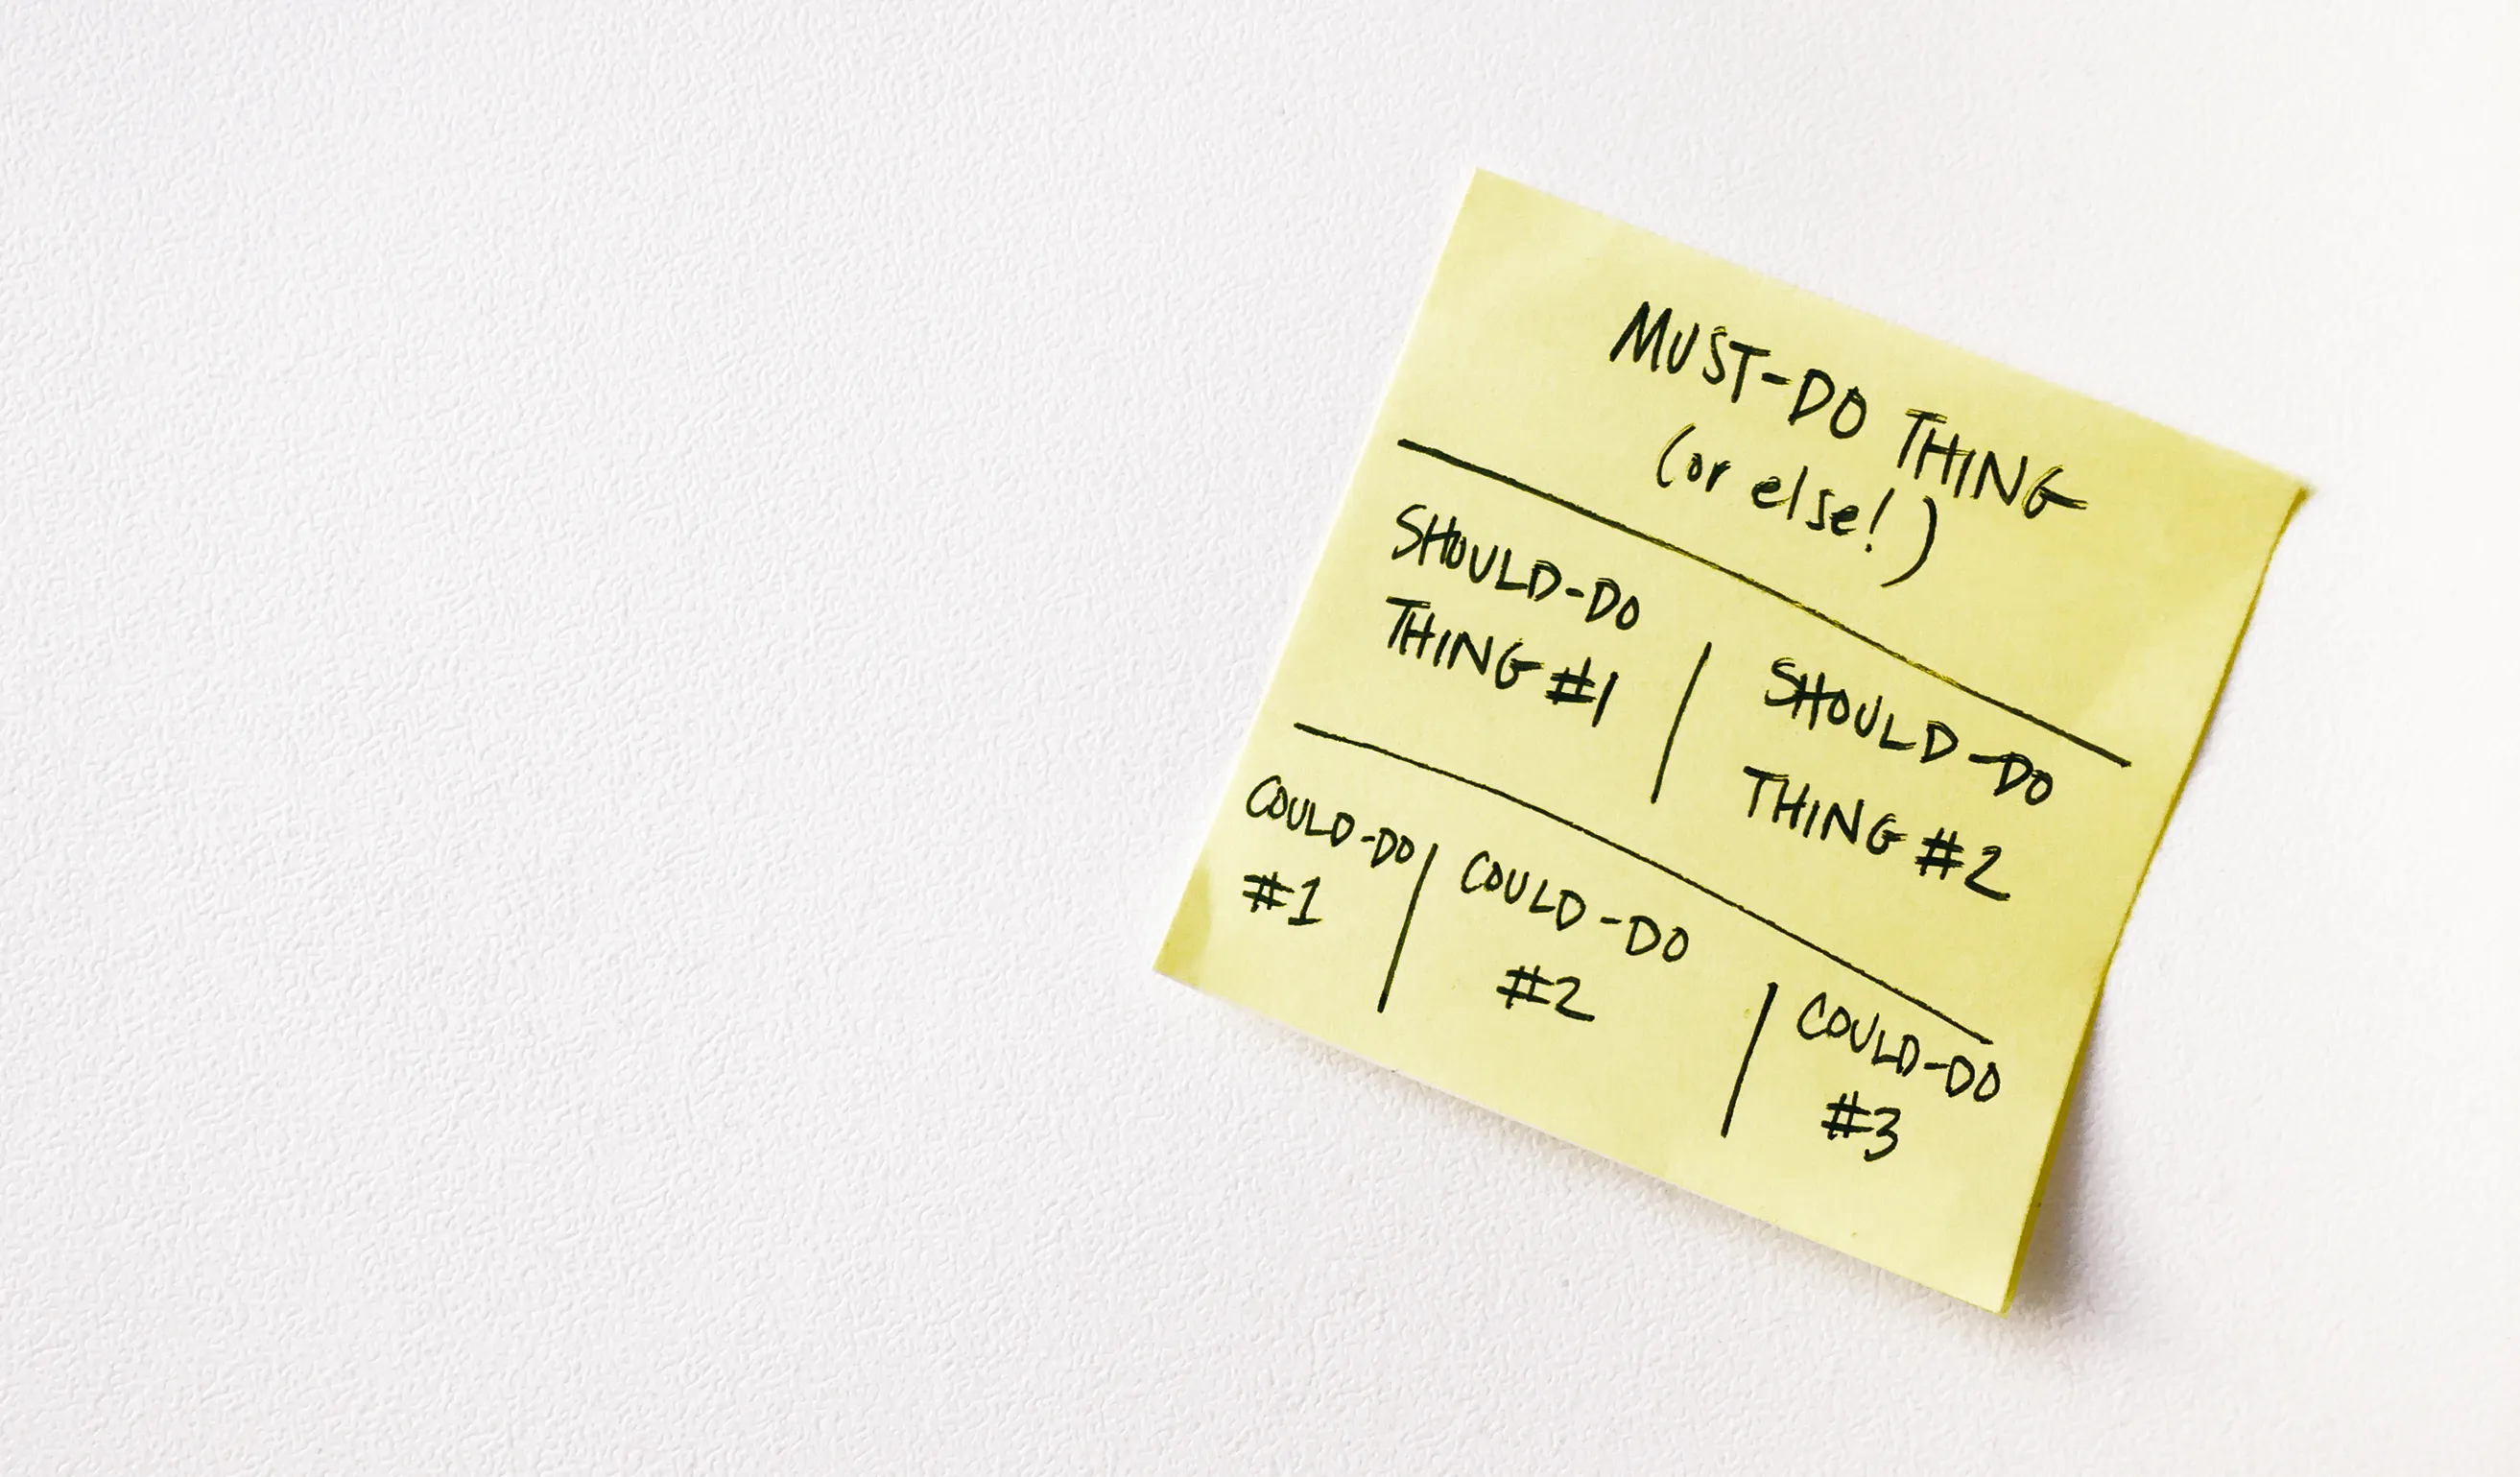 MUST-DO THING
(or else!)
SHOULD-DO
THING #1
SHOULD-DO
THING #2
COULD-DO
#1
COULD-DO
#2
COULD-DO
#3